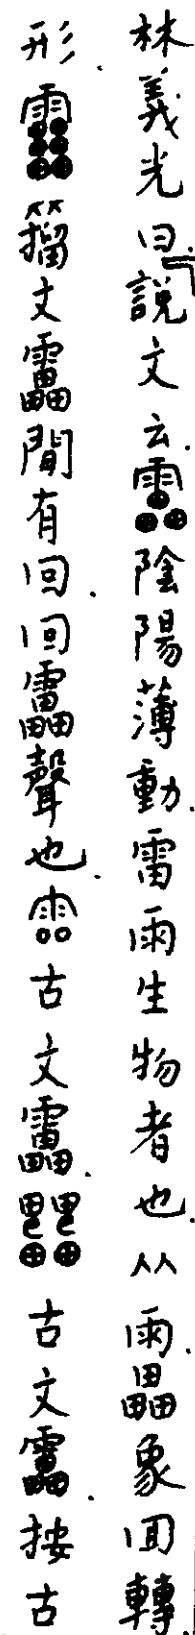 林義光曰「說文云靁陰陽薄動雷雨生物者也从雨畾象回轉
形䨻籀文靁閒有回回靁聲也古文靁古文靁按古